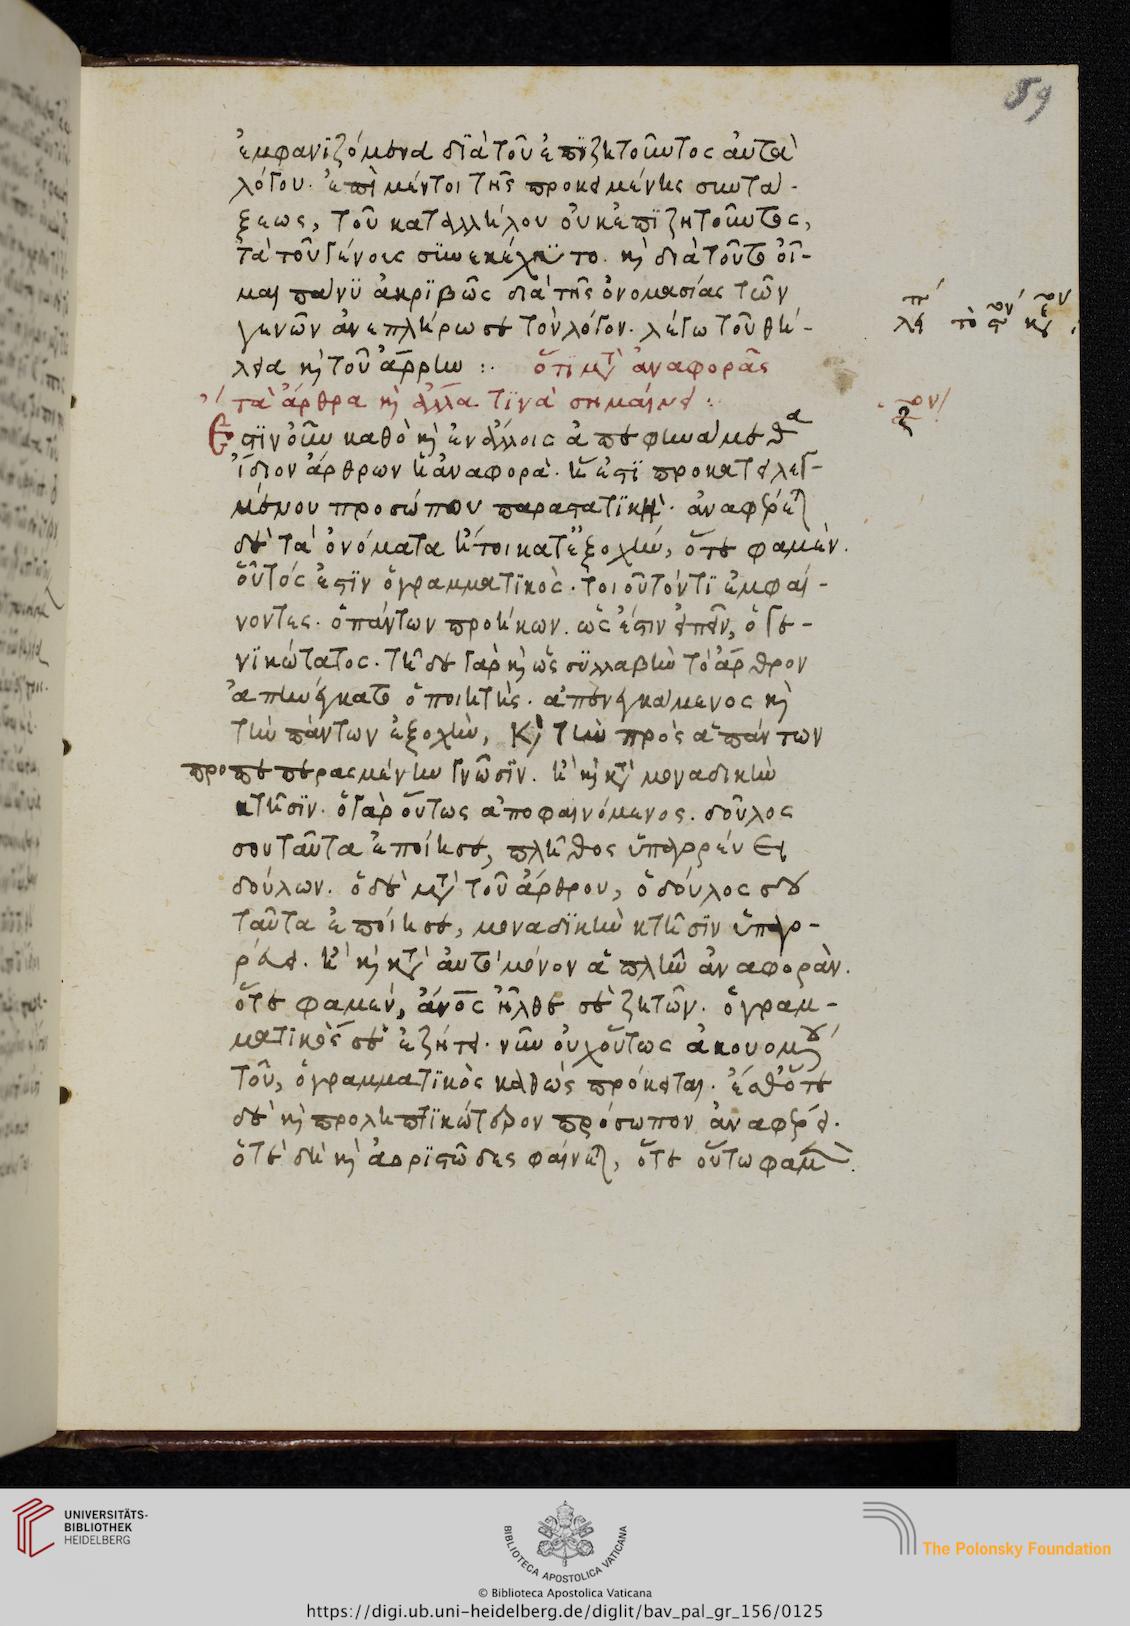 59
ἐμφανϊζόμενα δϊὰ τοῦ ἐπϊζητοῦντος αὐτὰ
λόγου. ἐπὶ μέντοι τῆς προκειμένης συντά-
ξεως, τοῦ καταλλήλου οὐκ ἐπϊζητοῦντος,
τὰ τοῦ γένους συνεκέχυτο. κὶ διὰ τοῦτο οἶ-
μαι πάνϋ ἀκρϊβῶς διὰ τῆς ὀνομασίας τῶν
γενῶν ἀνεπλήρωσε τὸν λόγον. λέγω τοῦ θή-
λεα κὶ τοῦ ἄρρην :. ὅτι μετὰ ἀναφορᾶς
τὰ ἄρθρα κὶ ἄλλα τϊνὰ σημαίνει :
Ἔστϊν οὖν καθὸ κὶ ἐν ἄλλοις ἀπεφηνάμεθα
ἴδιον ἄρθρων ἡ ἀναφορὰ. ἥ ἐστϊ προκατειλεγ-
μένου προσώπου παραστατϊκὴ. ἀναφέρεται
δὲ τὰ ὀνόματα ἤτοι κατ' ἐξοχὴν, ὅτε φαμὲν.
οὗτός ἐστϊν ὁ γραμματϊκὸς. τοιοῦτόν τϊ ἐμφαί-
νοντες. ὁ πάντων προήκων. ὥς ἐστιν εἰπεῖν, ὁ γε-
νϊκώτατος. τῇδε γὰρ κὶ ὡς συλλαβὴν τὸ ἄρθρον
ἀπηνέγκατο ὁ ποιητὴς. ἀπενεγκάμενος κὶ
τὴν πάντων ἐξοχὴν, κὶ τὴν πρὸς ἁπάντων
προπεπερασμένην γνῶσϊν. ἢ κὶ κατὰ μοναδικὴν
κτῆσϊν. ὁ γὰρ οὕτως ἀποφαινόμενος. δοῦλος
σου ταῦτα ἐποίησε, πλῆθος ὑπαγορεύει
δούλων. ὁ δὲ μετὰ τοῦ ἄρθρου, ὁ δοῦλος σου
ταῦτα ἐποίησε, μοναδϊκὴν κτῆσϊν ὑπαγο-
ρεύει. ἢ κὶ κατὰ αὐτὸ μόνον ἁπλῆν ἀναφορὰν.
ὅτε φαμὲν, ἄνος ἦλθε σὲ ζητῶν. ὁ γραμ-
ματϊκὸς σὲ ἐζήτει. νῦν οὐχ οὕτως ἀκουομένου
τοῦ, ὁ γραμματϊκὸς καθὼς πρόκειται. ἔσθ' ὅτε
δὲ κὶ προληπτϊκώτερον πρόσωπον ἀναφέρει.
ὅτε δὴ κὶ ἀορϊστῶδες φαίνεται, ὅτε οὕτω φαμὲν.
UNIVERSITÄTS-
BIBLIOTHEK
HEIDELBERG
BIBLIOTECA APOSTOLICA VATICANA
The Polonsky Foundation
© Biblioteca Apostolica Vaticana
https://digi.ub.uni-heidelberg.de/diglit/bav_pal_gr_156/0125